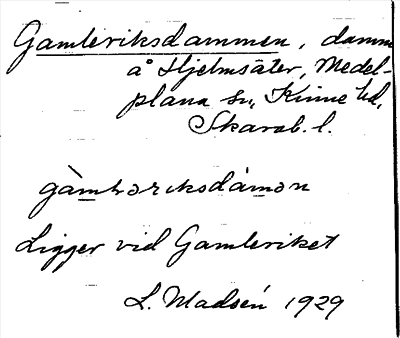 Gamleriksdammen, damm
å Hjelmsäter, Medel-
plana sn, Kinne hd,
Skarab. l.
gàmləriksdámən
Ligger vid Gamleriket
L. Madsén 1929